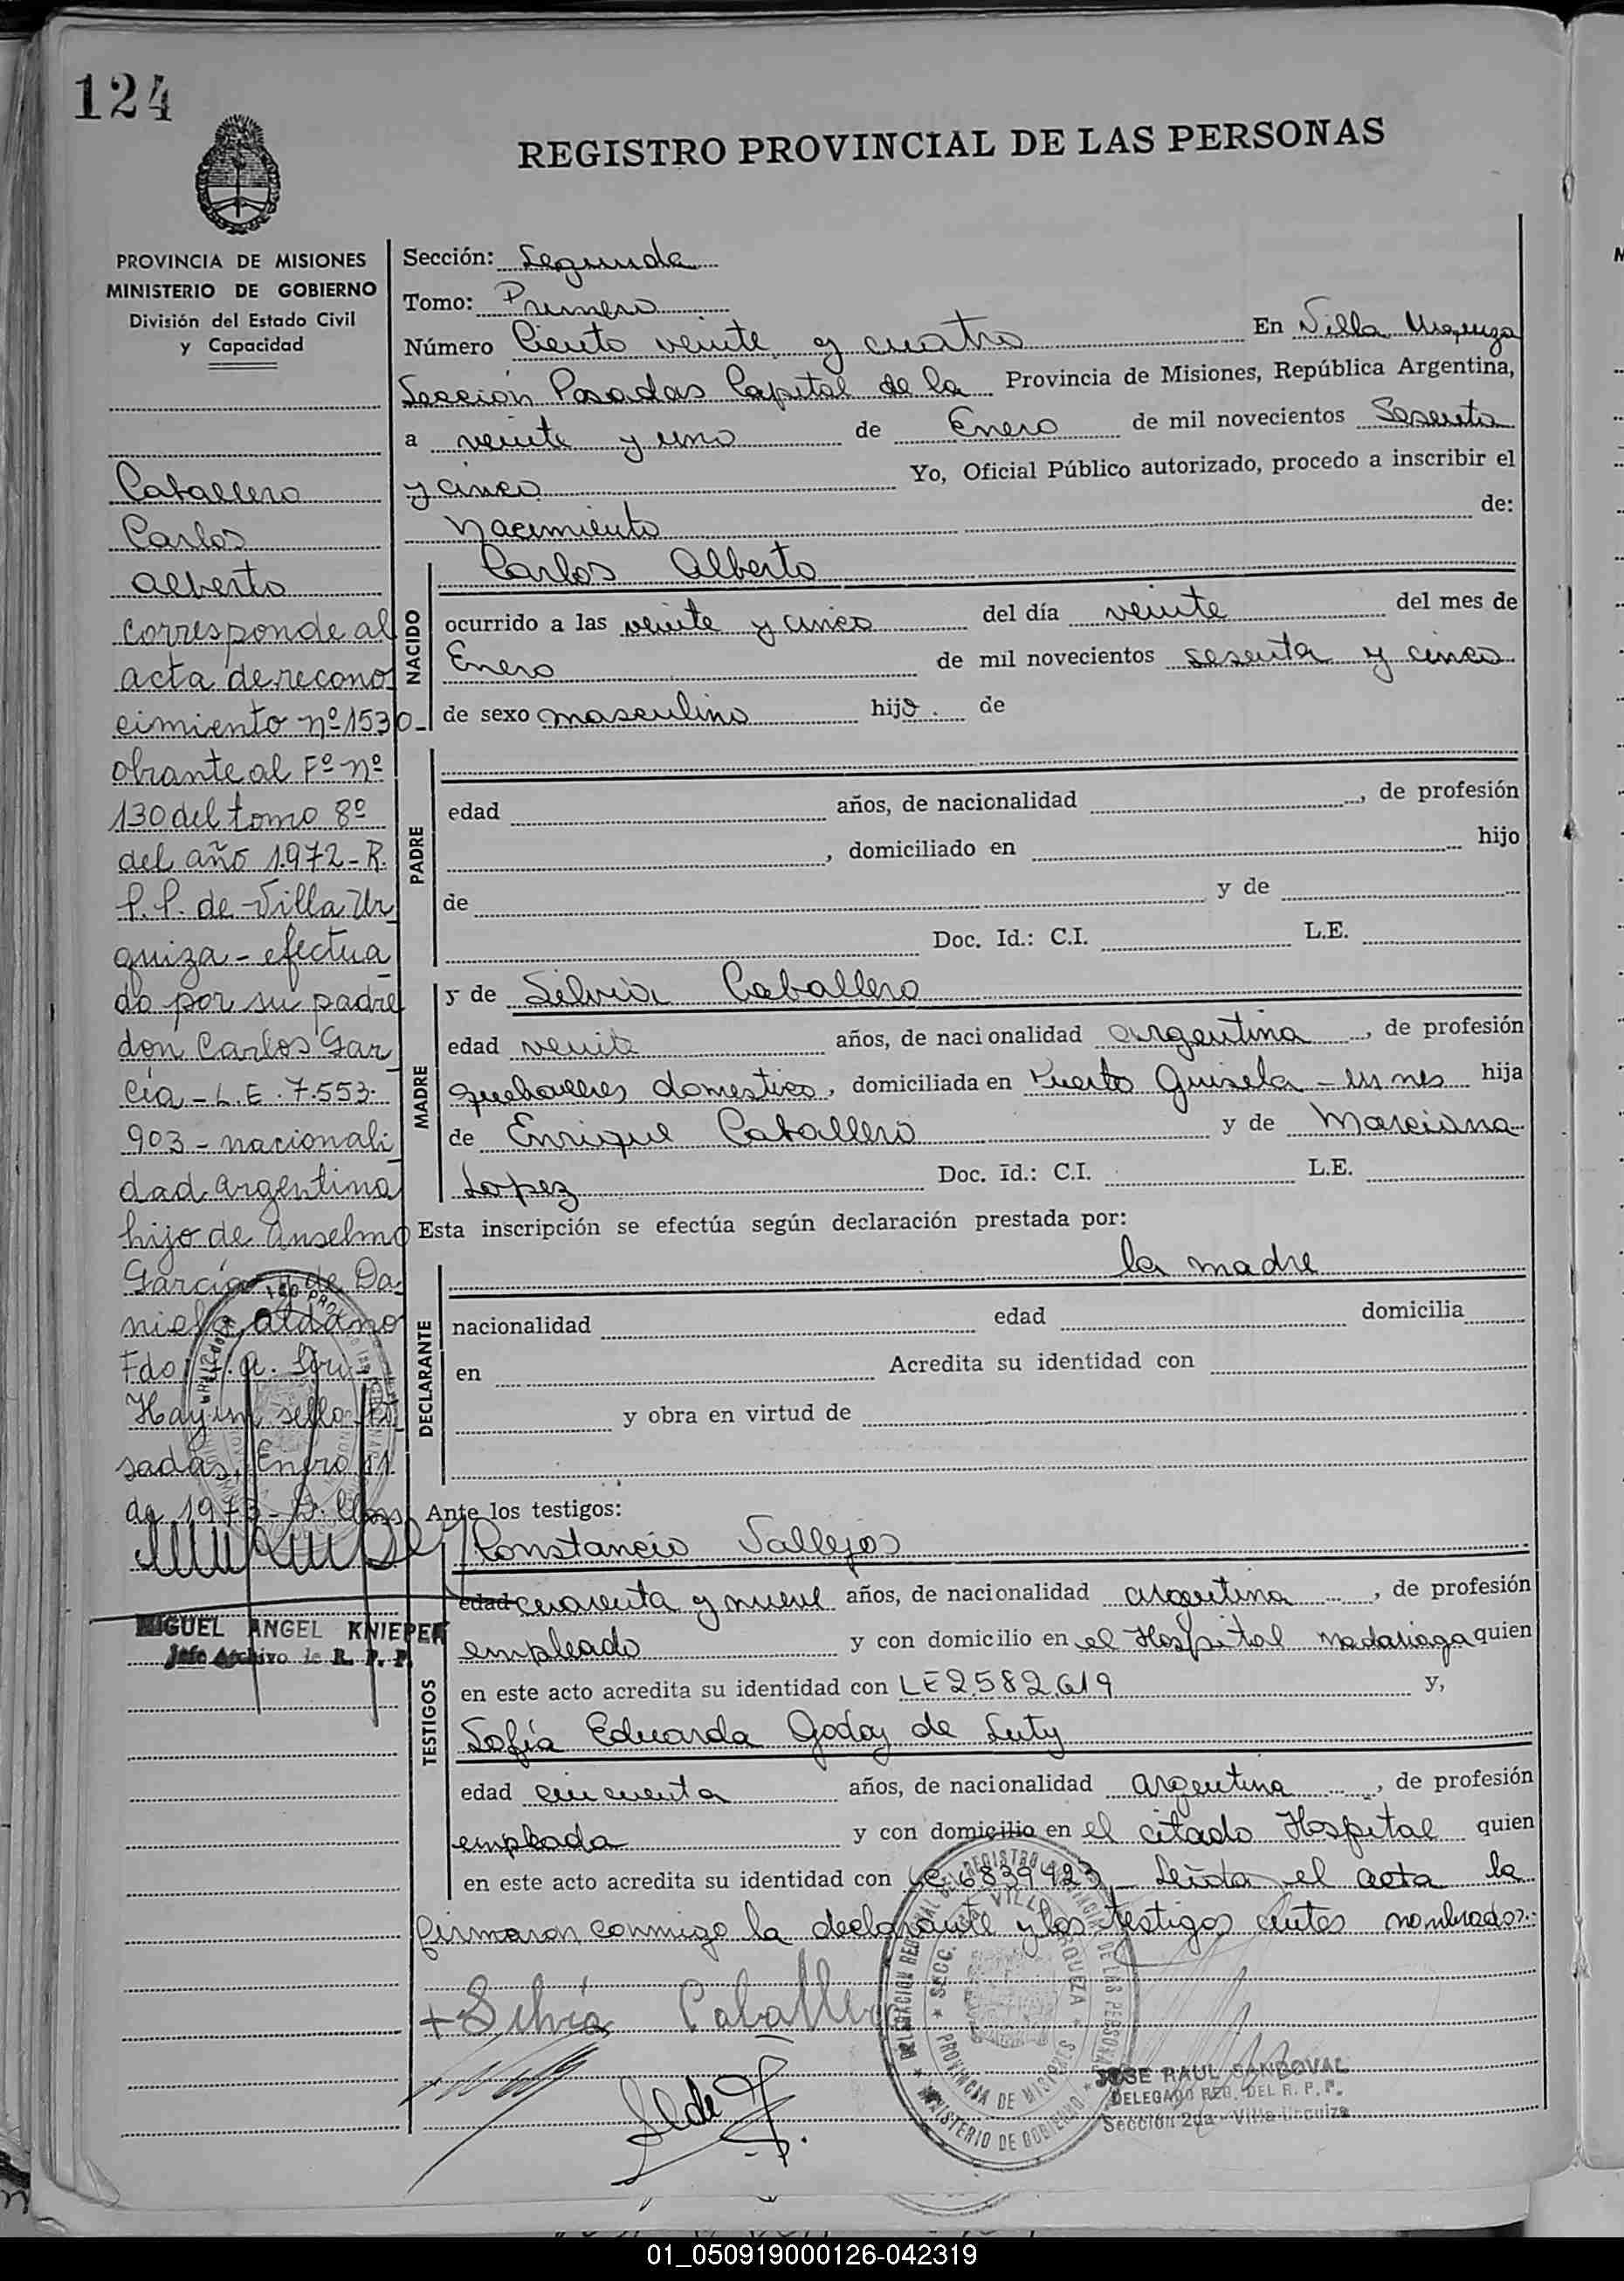 124
REGISTRO PROVINCIAL DE LAS PERSONAS
PROVINCIA DE MISIONES
MINISTERIO DE GOBIERNO
División del Estado Civil
y Capacidad
Caballero
Carlos
Alberto
corresponde al
acta de recono
cimiento nº 1530-
obrante al Fº nº
130 del tomo 8º
del año 1.972-R.
P.P. de Villa Ur
quiza - efectua
do por su padre
don Carlos Gar
cía - L.E. 7.553.
903 - nacionali
dad argentina
hijo de Anselmo
García y de Da
niela Aldano
Fdo:
Hay un sello - Po
sadas, Enero 11
de 1973 -
MIGUEL ANGEL KNIEPER
Jefe Archivo de R. P. P.
Sección: Segunda
Tomo: Primero
Número Ciento veinte y cuatro En Villa Urquiza
Sección Posadas Capital de la Provincia de Misiones, República Argentina,
a veinte y uno de Enero de mil novecientos Sesenta
y cinco Yo, Oficial Público autorizado, procedo a inscribir el
Nacimiento de:
NACIDO
Carlos Alberto
ocurrido a las veinte y cinco del día veinte del mes de
Enero de mil novecientos sesenta y cinco
de sexo masculino hijo. de
PADRE
edad años, de nacionalidad , de profesión
, domiciliado en hijo
de y de
Doc. Id.: C.I. L.E.
MADRE
y de Silvia Caballero
edad veinte años, de nacionalidad argentina, de profesión
quehaceres domestico, domiciliada en Puerto Guisela - hija
de Enrique Caballero y de Marciana
Lopez Doc. Id.: C.I. L.E.
Esta inscripción se efectúa según declaración prestada por:
DECLARANTE
la madre
nacionalidad edad domicilia
en Acredita su identidad con
y obra en virtud de
Ante los testigos:
TESTIGOS
Constancio Vallejos
edad cuarenta y nueve años, de nacionalidad argentina, de profesión
empleado y con domicilio en el Hospital Madariaga quien
en este acto acredita su identidad con LE 2.582.619 y,
Sofía Eduarda Godoy de Luty
edad cincuenta años, de nacionalidad argentina, de profesión
empleada y con domicilio en el citado Hospital quien
en este acto acredita su identidad con LC 6839423 - Leída el acta la
firmaron conmigo la declarante y los testigos antes nombrados.
+ Silvia Caballero
DELEGACION REGIONAL DEL REGISTRO PROVINCIAL DE LAS PERSONAS
MINISTERIO DE GOBIERNO
SECC. 2da VILLA URQUIZA
PROVINCIA DE MISIONES
JOSE RAUL SANDOVAL
DELEGADO REG. DEL R. P. P.
Sección 2da - Villa Urquiza
01_050919000126-042319